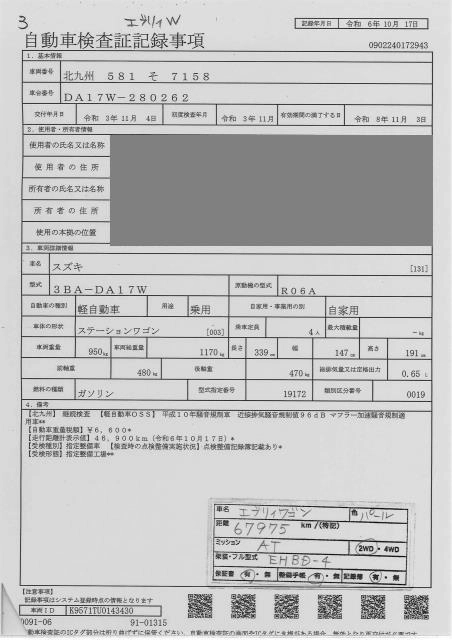 3
エブリィW
記録年月日 令和 6年10月 17日
自動車検査証記録事項
0902240172943
1．基本情報
車両番号 北九州 581 そ 7158
車台番号 DA17W-280262
交付年月日 令和 3年11月 4日 初度検査年月 令和 3年11月 有効期間の満了する日 令和 8年11月 3日
2．使用者・所有者情報
使用者の氏名又は名称
使用者の住所
所有者の氏名又は名称
所有者の住所
使用の本拠の位置
3．車両詳細情報
車名 スズキ [131]
型式 3BA-DA17W 原動機の型式 R06A
自動車の種別 軽自動車 用途 乗用 自家用・事業用の別 自家用
車体の形状 ステーションワゴン [003] 乗車定員 4人 最大積載量 -kg
車両重量 950kg 車両総重量 1170kg 長さ 339cm 幅 147cm 高さ 191cm
前軸重 480kg 後軸重 470kg 総排気量又は定格出力 0.65L
燃料の種類 ガソリン 型式指定番号 19172 類別区分番号 0019
4．備考
【北九州】 継続検査 【軽自動車OSS】 平成10年騒音規制車 近接排気騒音規制値96dB マフラー加速騒音規制適
用車**
【自動車重量税額】￥6,600*
【走行距離計表示値】46,900km（令和6年10月17日）*
【受検種別】指定整備車 【検査時の点検整備実施状況】点検整備記録簿記載あり*
【受検形態】指定整備工場**
車名 エブリィワゴン 色 パール
距離 67975 km /（特記）
ミッション AT 2WD・4WD
架装・フル型式 EHBD-4
保証書 有・無 整備手帳 有・無 記録簿 有・無
【注意事項】
記録事項はシステム登録時点の情報となります
車両ID K9571TU0143430
0091-06 91-01315